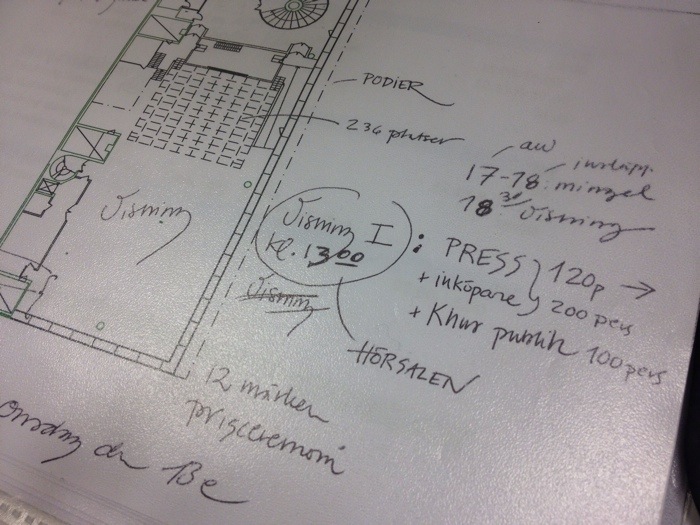 PODIER
236 platser
17-18 mingel
18 30 Visning
Visning
Visning I :
kl. 13 00
PRESS } 120p →
+ inköpare } 200 pers
+ Khur publik 100 pers
Visning
HÖRSALEN
12 märken
prisceremoni